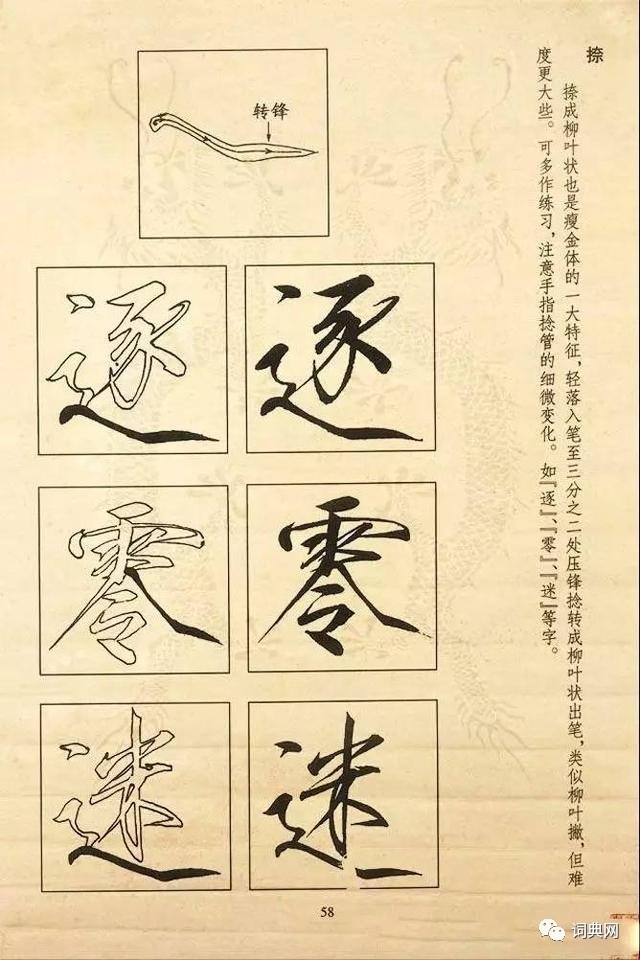 捺
捺成柳叶状也是瘦金体的一大特征，轻落入笔至三分之二处压锋捻转成柳叶状出笔，类似柳叶撇，但难
度更大些。可多作练习，注意手指捻管的细微变化。如『逐』、『零』、『迷』等字。
转锋
逐 逐
零 零
迷 迷
58
词典网